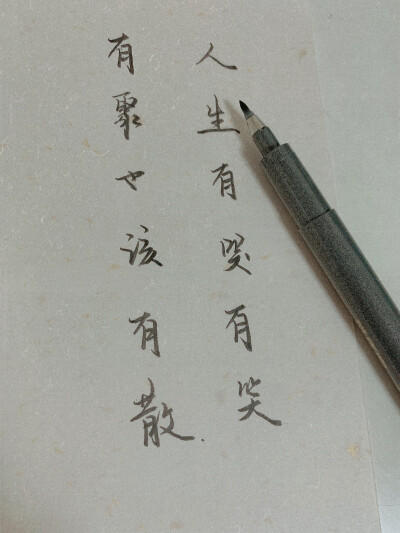 人生有哭有笑
有聚也该有散.